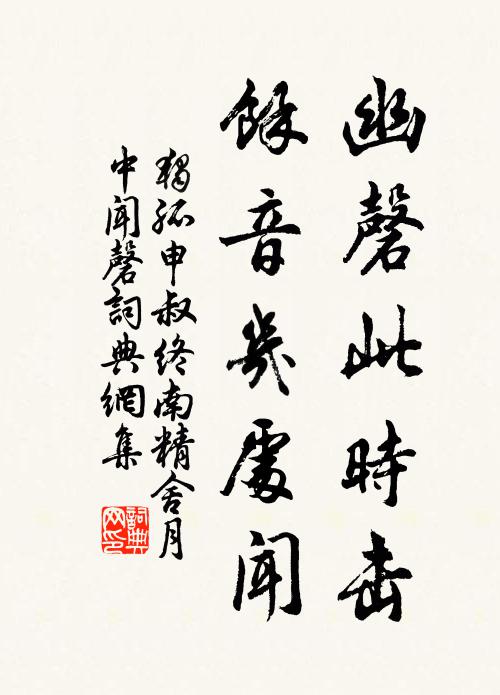 幽磬此時击
餘音幾處聞
獨孤申叔终南精舍月
中闻磬詞典網集
詞典
网印